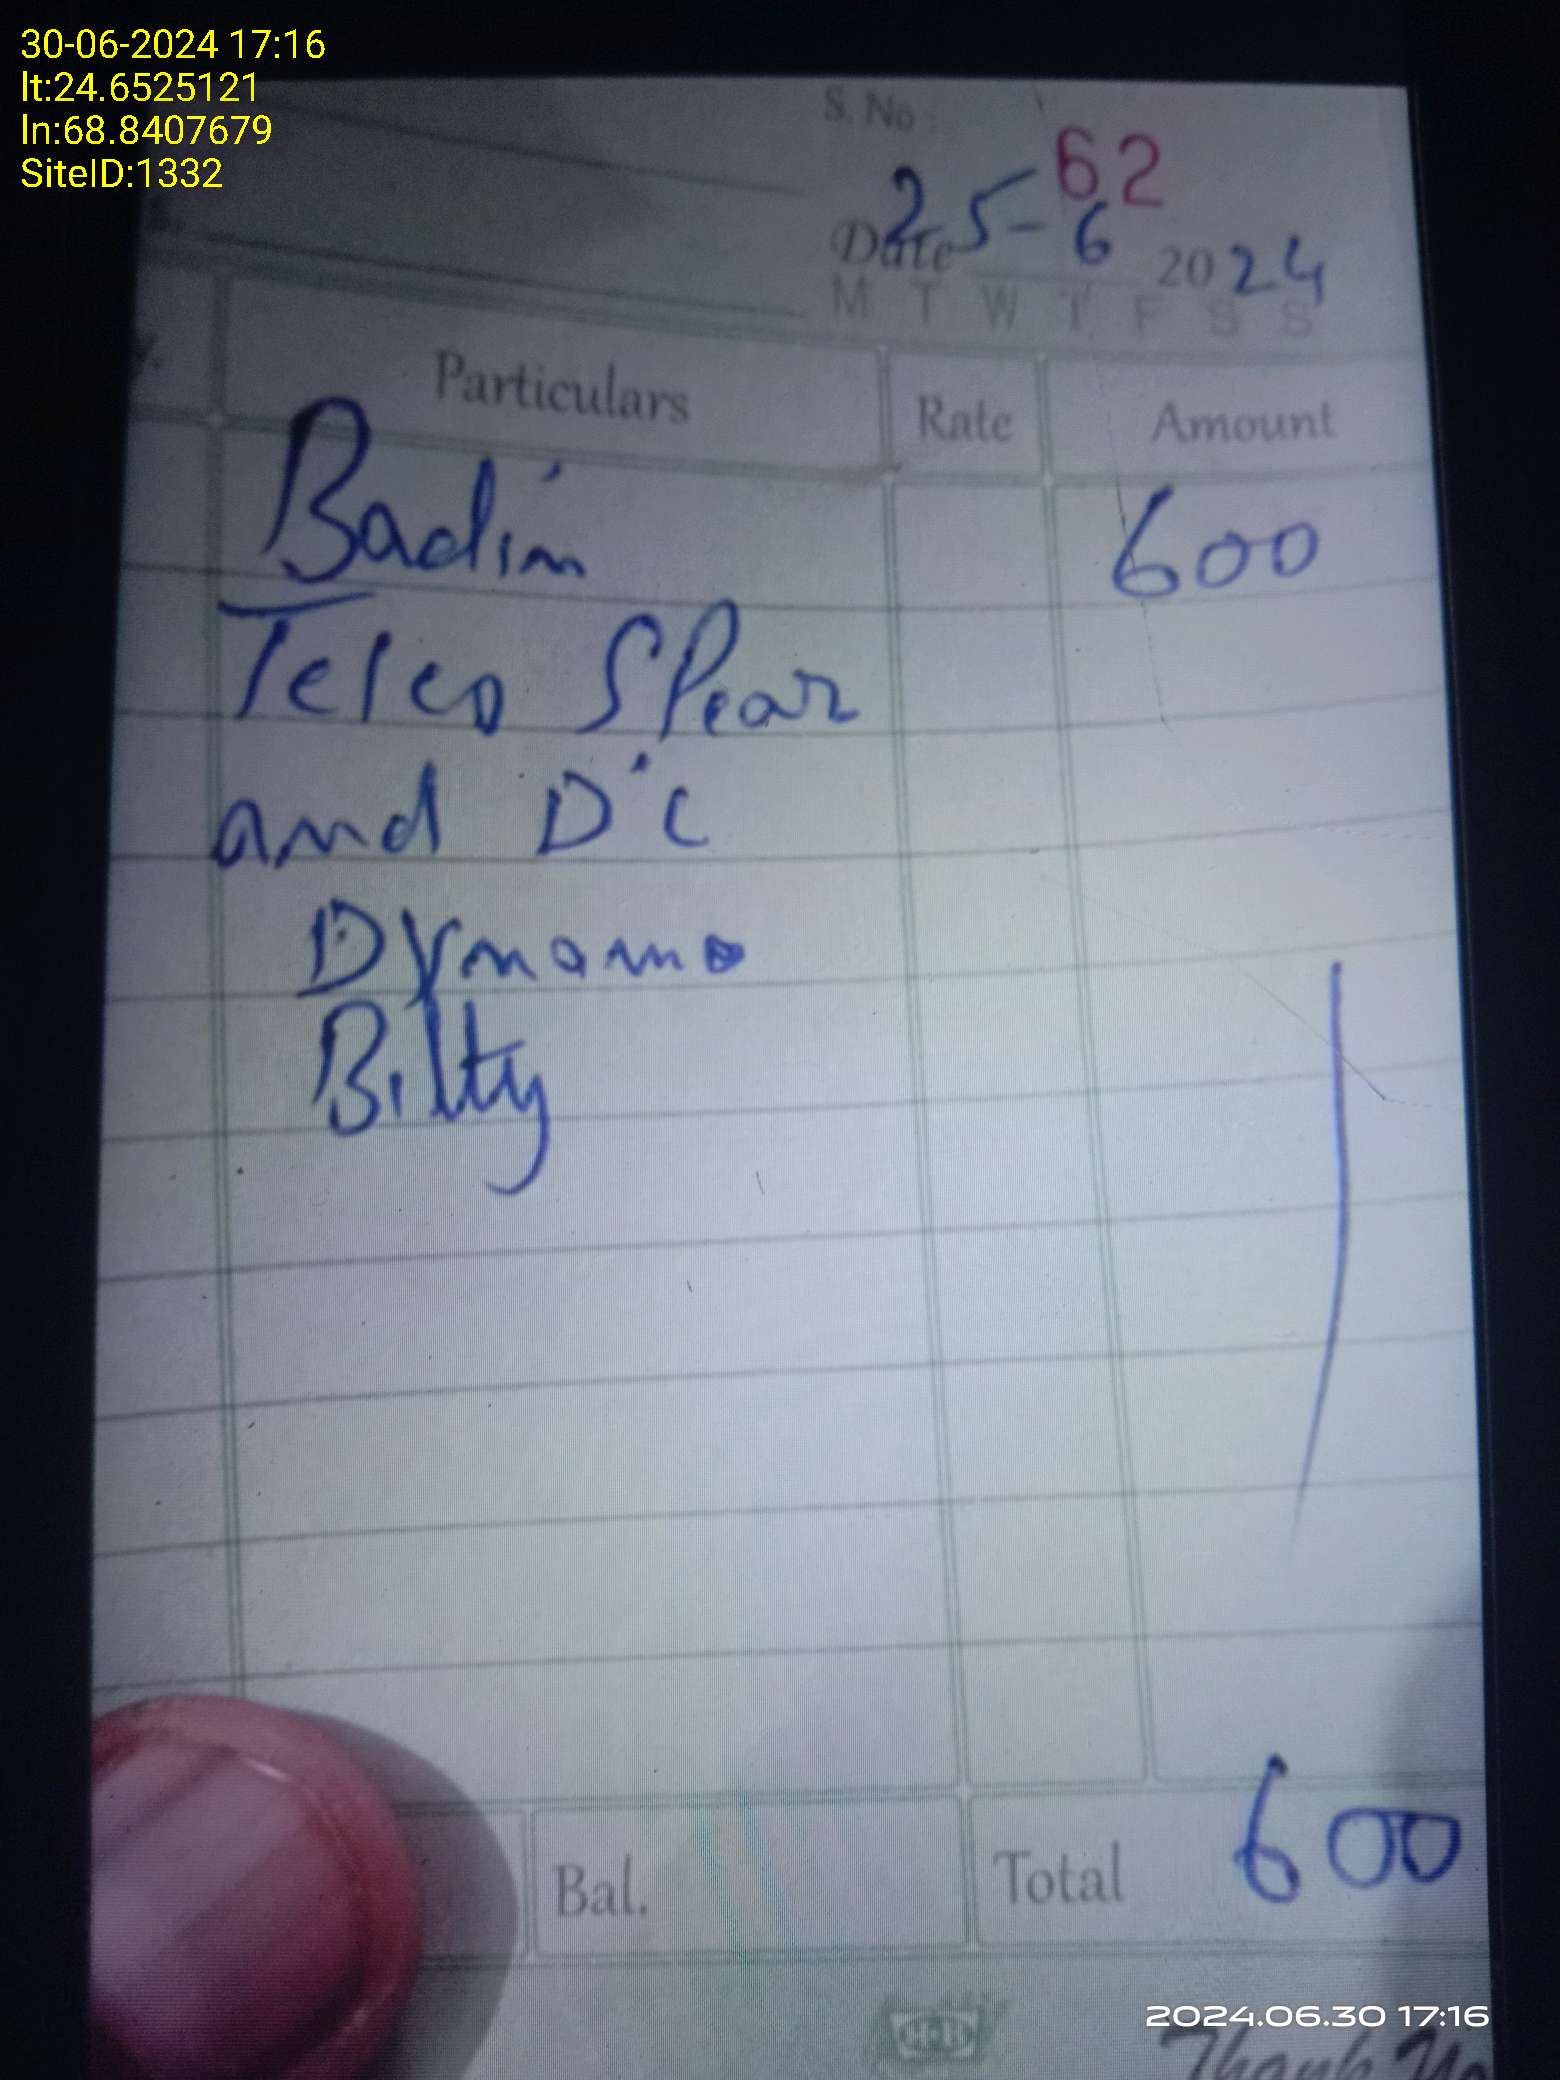 30-06-2024 17:16
lt:24.6525121
ln:68.8407679
SiteID:1332
S. No :
62
Date 25-6 2024
M T W T F S S
Particulars Rate Amount
Badin 600
Telco SPear
and D'C
Dynamo
Bilty
Bal. Total 600
2024.06.30 17:16
Thank Yo